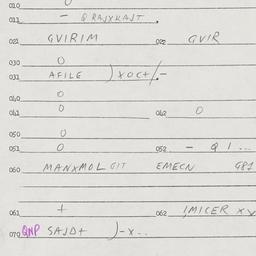 010
011 - QRAJXKAJT.
021 GVIRIM 022 GVIR
030 O
031 AFILE )XOCT/-
040 O
041 O 042 O
050 O
051 O 052 - Q I ...
060 MANXMOL GIT EMECN G81
061 + 062 IMICER XV
070 QNP SAJD+ )-X-..